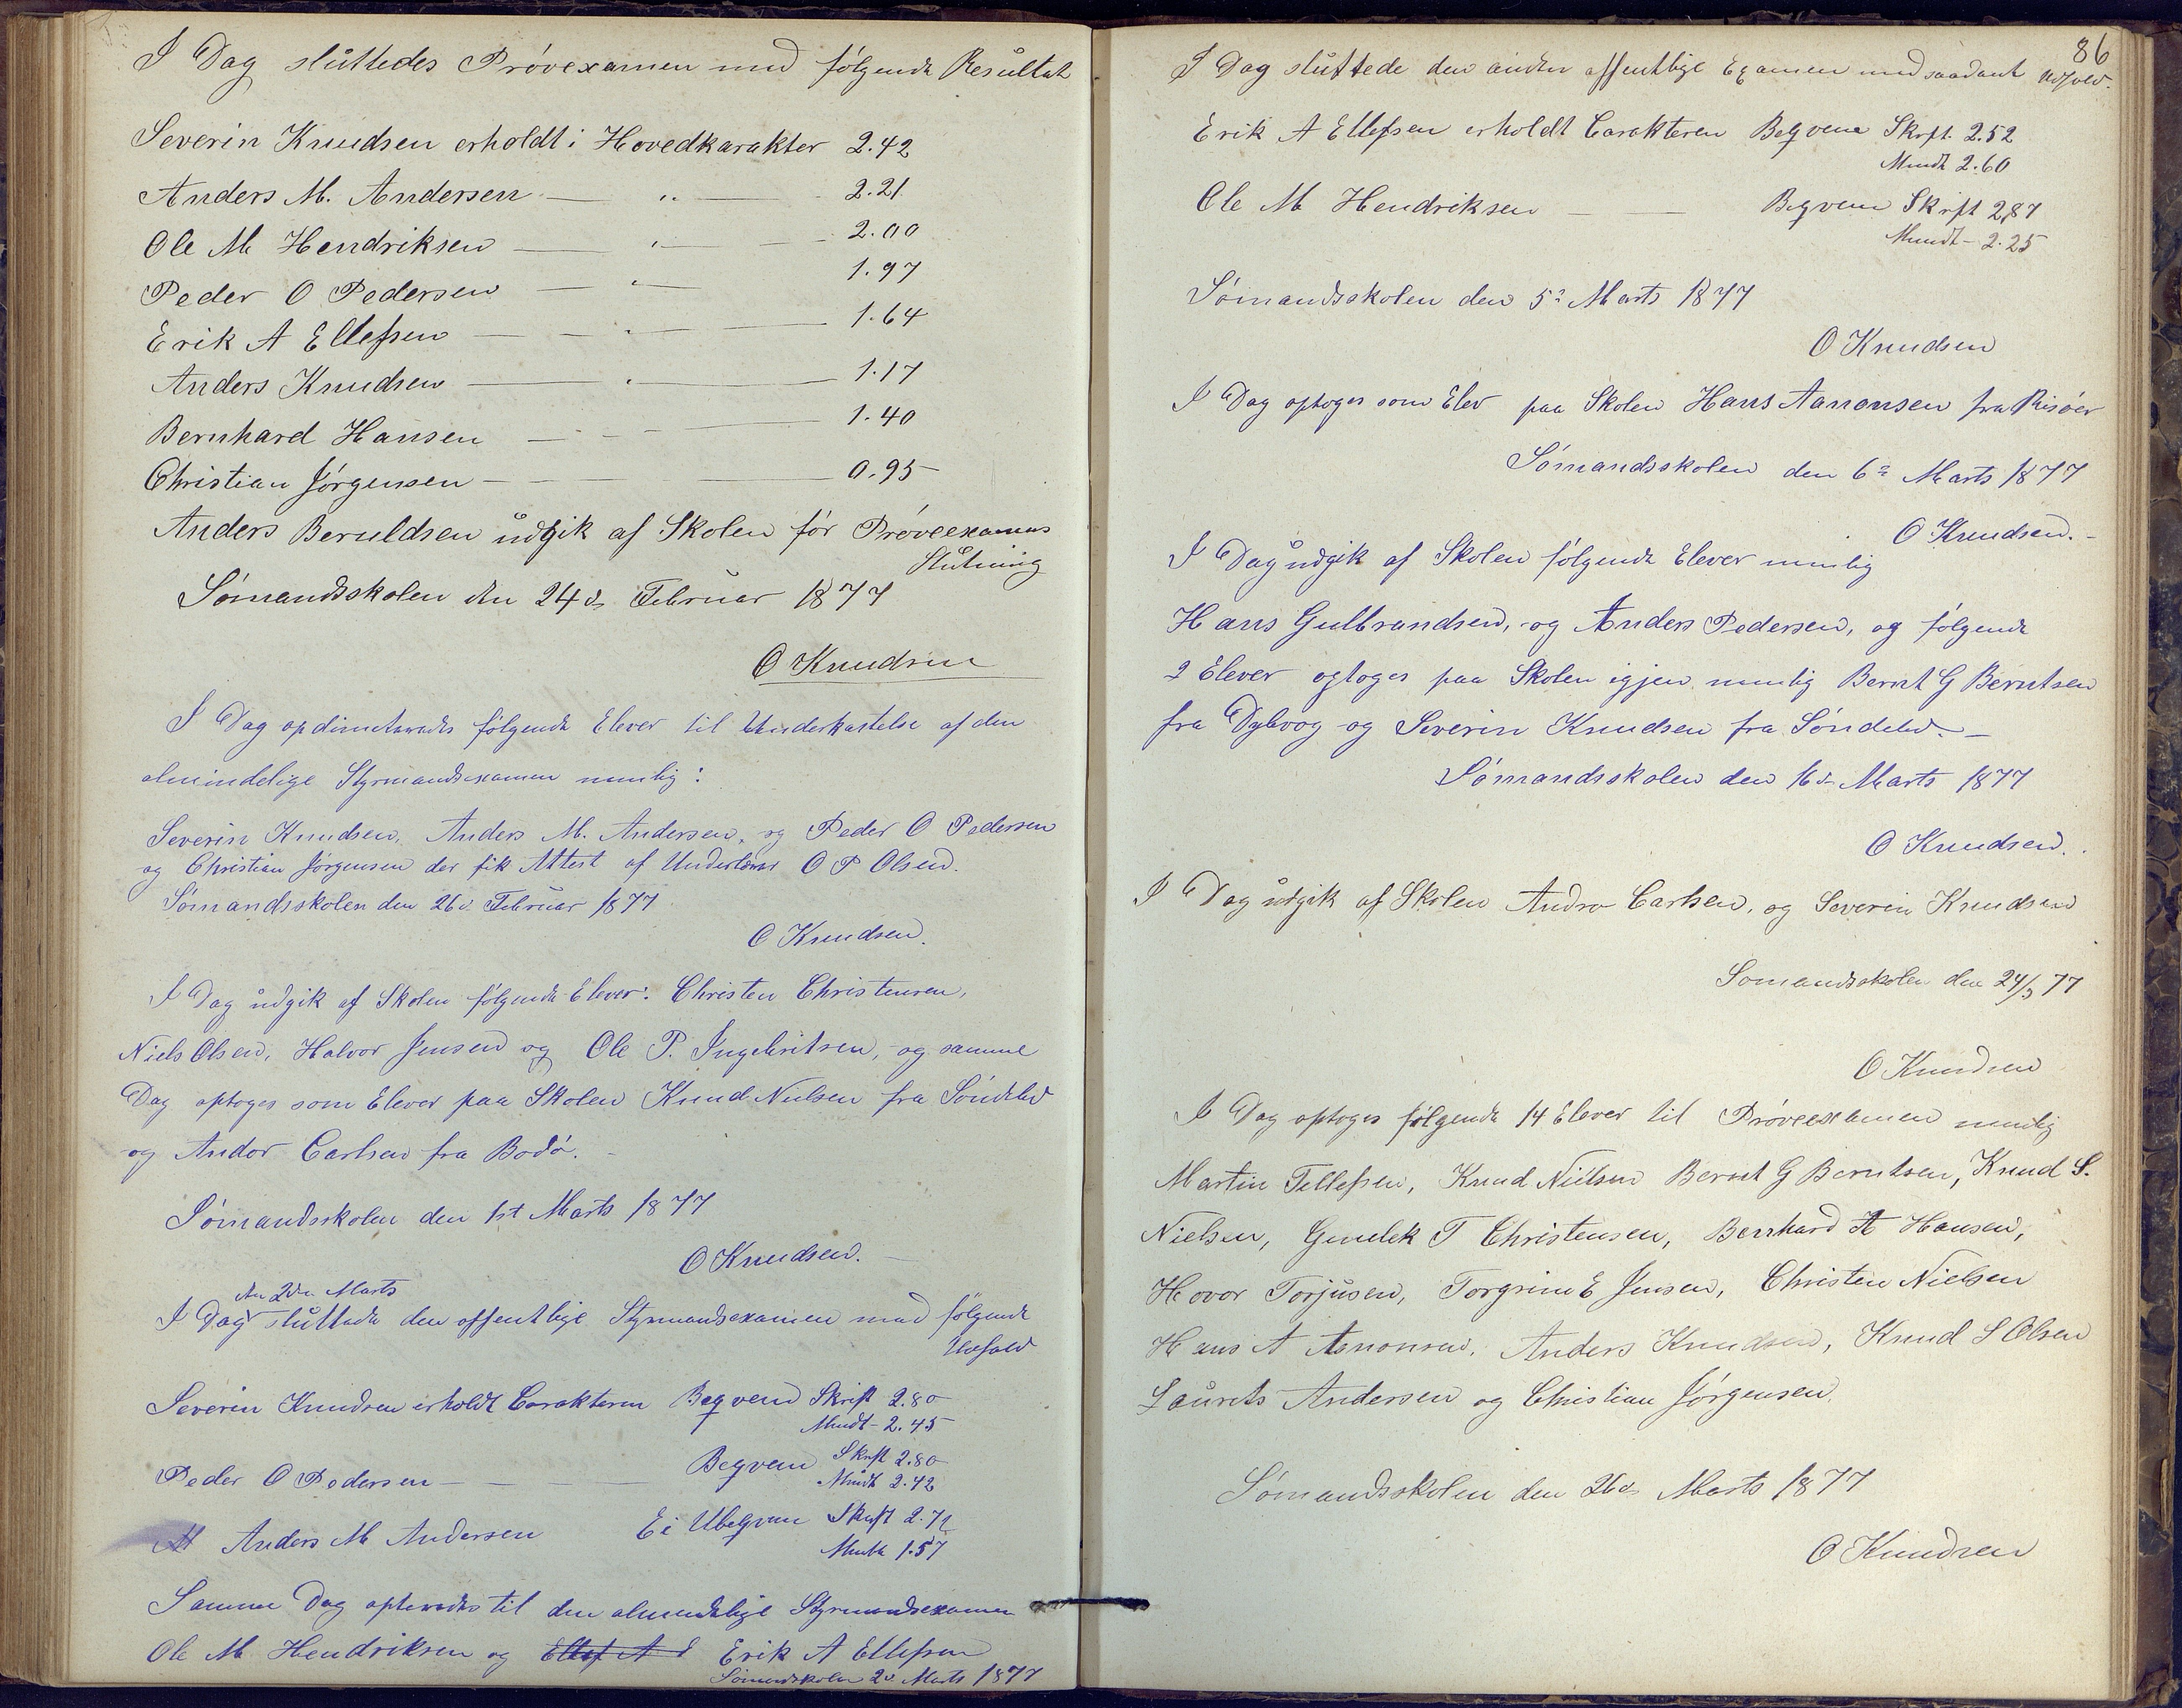 I Dag sluttedes Prøvexamen med følgende Resultat
Severin Knudsen erholdt i Hovedkarakter 2.42
Anders M. Andersen — „ — 2.21
Ole M Hendriksen — „ — 2.00
Peder O Pedersen — „ — 1.97
Erik A Ellefsen — „ — 1.64
Anders Knudsen — „ — 1.17
Bernhard Hansen — 1.40
Christian Jørgensen — 0.95
Anders Beruldsen udgik af Skolen før Prøveexamens
Slutning
Sømandsskolen den 24d Februar 1877
O Knudsen
I Dag følgende Elever til Underkastelse af den
almindelige Styrmandsexamen nemlig:
Severin Knudsen, Anders M. Andersen, og Peder O Pedersen
og Christian Jørgensen der fik Attest af Underlærer O P Olsen.
Sømandsskolen den 26d Februar 1877
O Knudsen.
I Dag udgik af Skolen følgende Elever: Christen Christensen,
Niels Olsen, Halvor Jensen og Ole P. Ingebritsen, og samme
Dag optoges som Elever paa Skolen Knud Nielsen fra Søndeled
og Andor Carlsen fra Bodø.
Sømandsskolen den 1st Marts 1877
O Knudsen.
den 2den Marts
I Dag sluttede den offentlige Styrmandsexamen med følgende
Udfald
Severin Knudsen erholdt Carakteren Beqvem Skrift 2.80
Mundt - 2.45
Peder O Pedersen — Beqvem Skrift 2.80
Mundt 2.42
Anders M Andersen Ei Ubeqvem Skrift 2.72
Mundt 1.57
Samme Dag til den almindelige Styrmandsexamen
Ole M Hendriksen og Ellef A E Erik A Ellefsen
Sømandsskolen 2d Marts 1877
86
I Dag sluttede den anden offentlige Examen med saadant Udfald.
Erik A Ellefsen erholdt Carakteren Beqvem Skrft. 2.52
Mundt 2.60
Ole M Hendriksen — — Beqvem Skrift 2,87
Mundt - 2.25
Sømandsskolen den 5te Marts 1877
O Knudsen
I Dag optoges som Elev paa Skolen Hans Aanonsen fra Risøer
Sømandsskolen den 6te Marts 1877
O Knudsen.
I Dag udgik af Skolen følgende Elever nemlig
Hans Gulbrandsen, og Anders Pedersen, og følgende
2 Elever optoges paa Skolen igjen nemlig Bernt G Berntsen
fra Dybvog og Severin Knudsen fra Søndeled.
Sømandsskolen den 16d Marts 1877
O Knudsen.
I Dag udgik af Skolen Andor Carlsen, og Severin Knudsen
Sømandsskolen den 24/3 77
O Knudsen
I Dag optoges følgende 14 Elever til Prøveexamen nemlig
Martin Tellefsen, Knud Nielsen Bernt G Berntsen, Knud S.
Nielsen, Gunlek T Christensen, Bernhard A Hansen,
Hovor Torjusen, Torgrim E Jensen, Christen Nielsen
Hans A Aanonsen, Anders Knudsen, Knud S Olsen
Laurets Andersen og Christian Jørgensen.
Sømandsskolen den 26d Marts 1877
O Knudsen